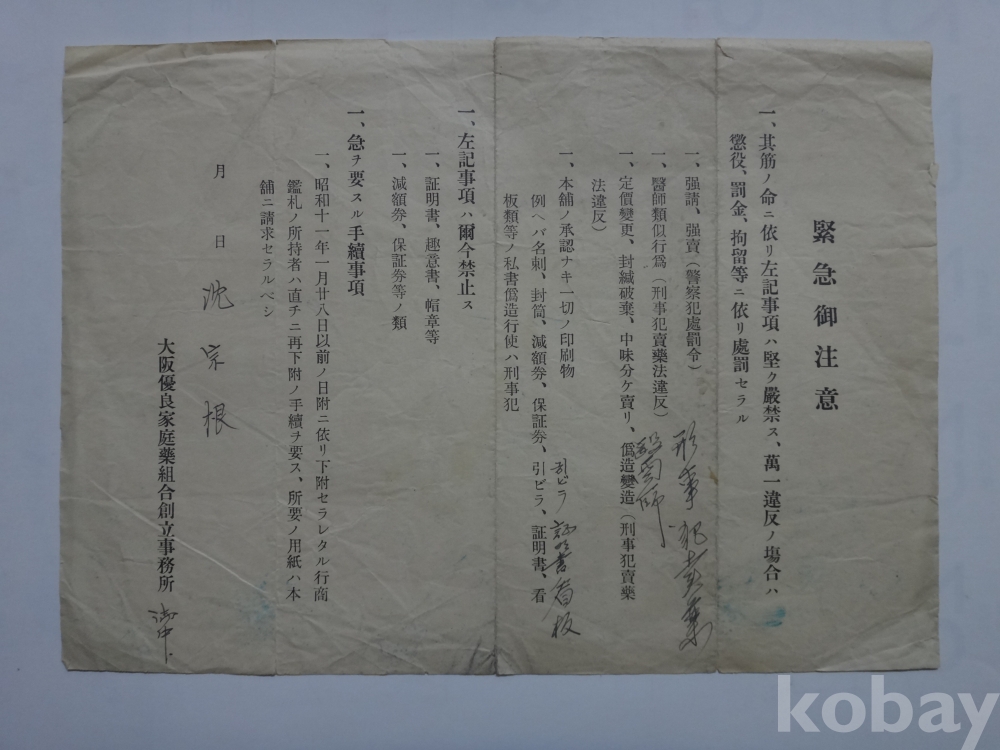 緊急御注意
一、其筋ノ命ニ依リ左記事項ハ堅ク嚴禁ス、萬一違反ノ場合ハ
懲役、罰金、拘留等ニ依リ處罰セラル
一、强請、强賣(警察犯處罰令)
一、醫師類似行爲(刑事犯賣藥法違反)
形事犯賣藥
一、定價變更、封緘破棄、中味分ケ賣リ、僞造變造(刑事犯賣藥
法違反)
醫師
一、本舖ノ承認ナキ一切ノ印刷物
例ヘバ名刺、封筒、減額券、保証券、引ビラ、証明書、看
引ビラ 証明書 看板
板類等ノ私書僞造行使ハ刑事犯
一、左記事項ハ爾今禁止ス
一、証明書、趣意書、帽章等
一、減額券、保証券等ノ類
一、急ヲ要スル手續事項
一、昭和十一年一月廿八日以前ノ日附ニ依リ下附セラレタル行商
鑑札ノ所持者ハ直チニ再下附ノ手續ヲ要ス、所要ノ用紙ハ本
舖ニ請求セラルベシ
月 日 沈宗根
大阪優良家庭藥組合創立事務所 御中
kobay